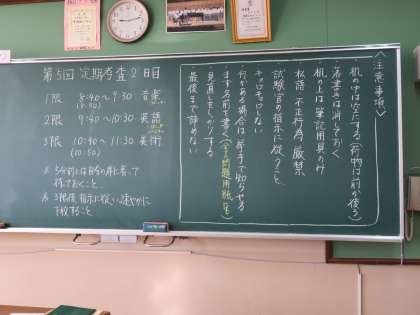 第5回 定期考査2日目
1限 8:40~9:30 音楽
(8:50)
2限 9:40~10:30 英語
3限 10:40~11:30 美術
(10:50)
※5分前には自分の席に着って
待っておくこと
※3限後、指示に従い、速やかに
下校すること
〈注意事項〉
・机の中は空にする(荷物は前か後ろ)
・落書きは消しておく
・机の上は筆記用具のみ
・私語、不正行為、厳禁
・試験官の指示に従うこと
・キョロキョロしない
・何かある場合は挙手で知らせる
・まず名前を書く(全ての問題用紙にも)
・見直しをしっかりする
・最後まで諦めない